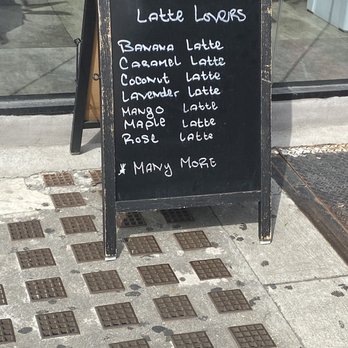 Latte Lovers
Banana Latte
Caramel Latte
Coconut Latte
Lavender Latte
Mango Latte
Maple Latte
Rose Latte
* Many More